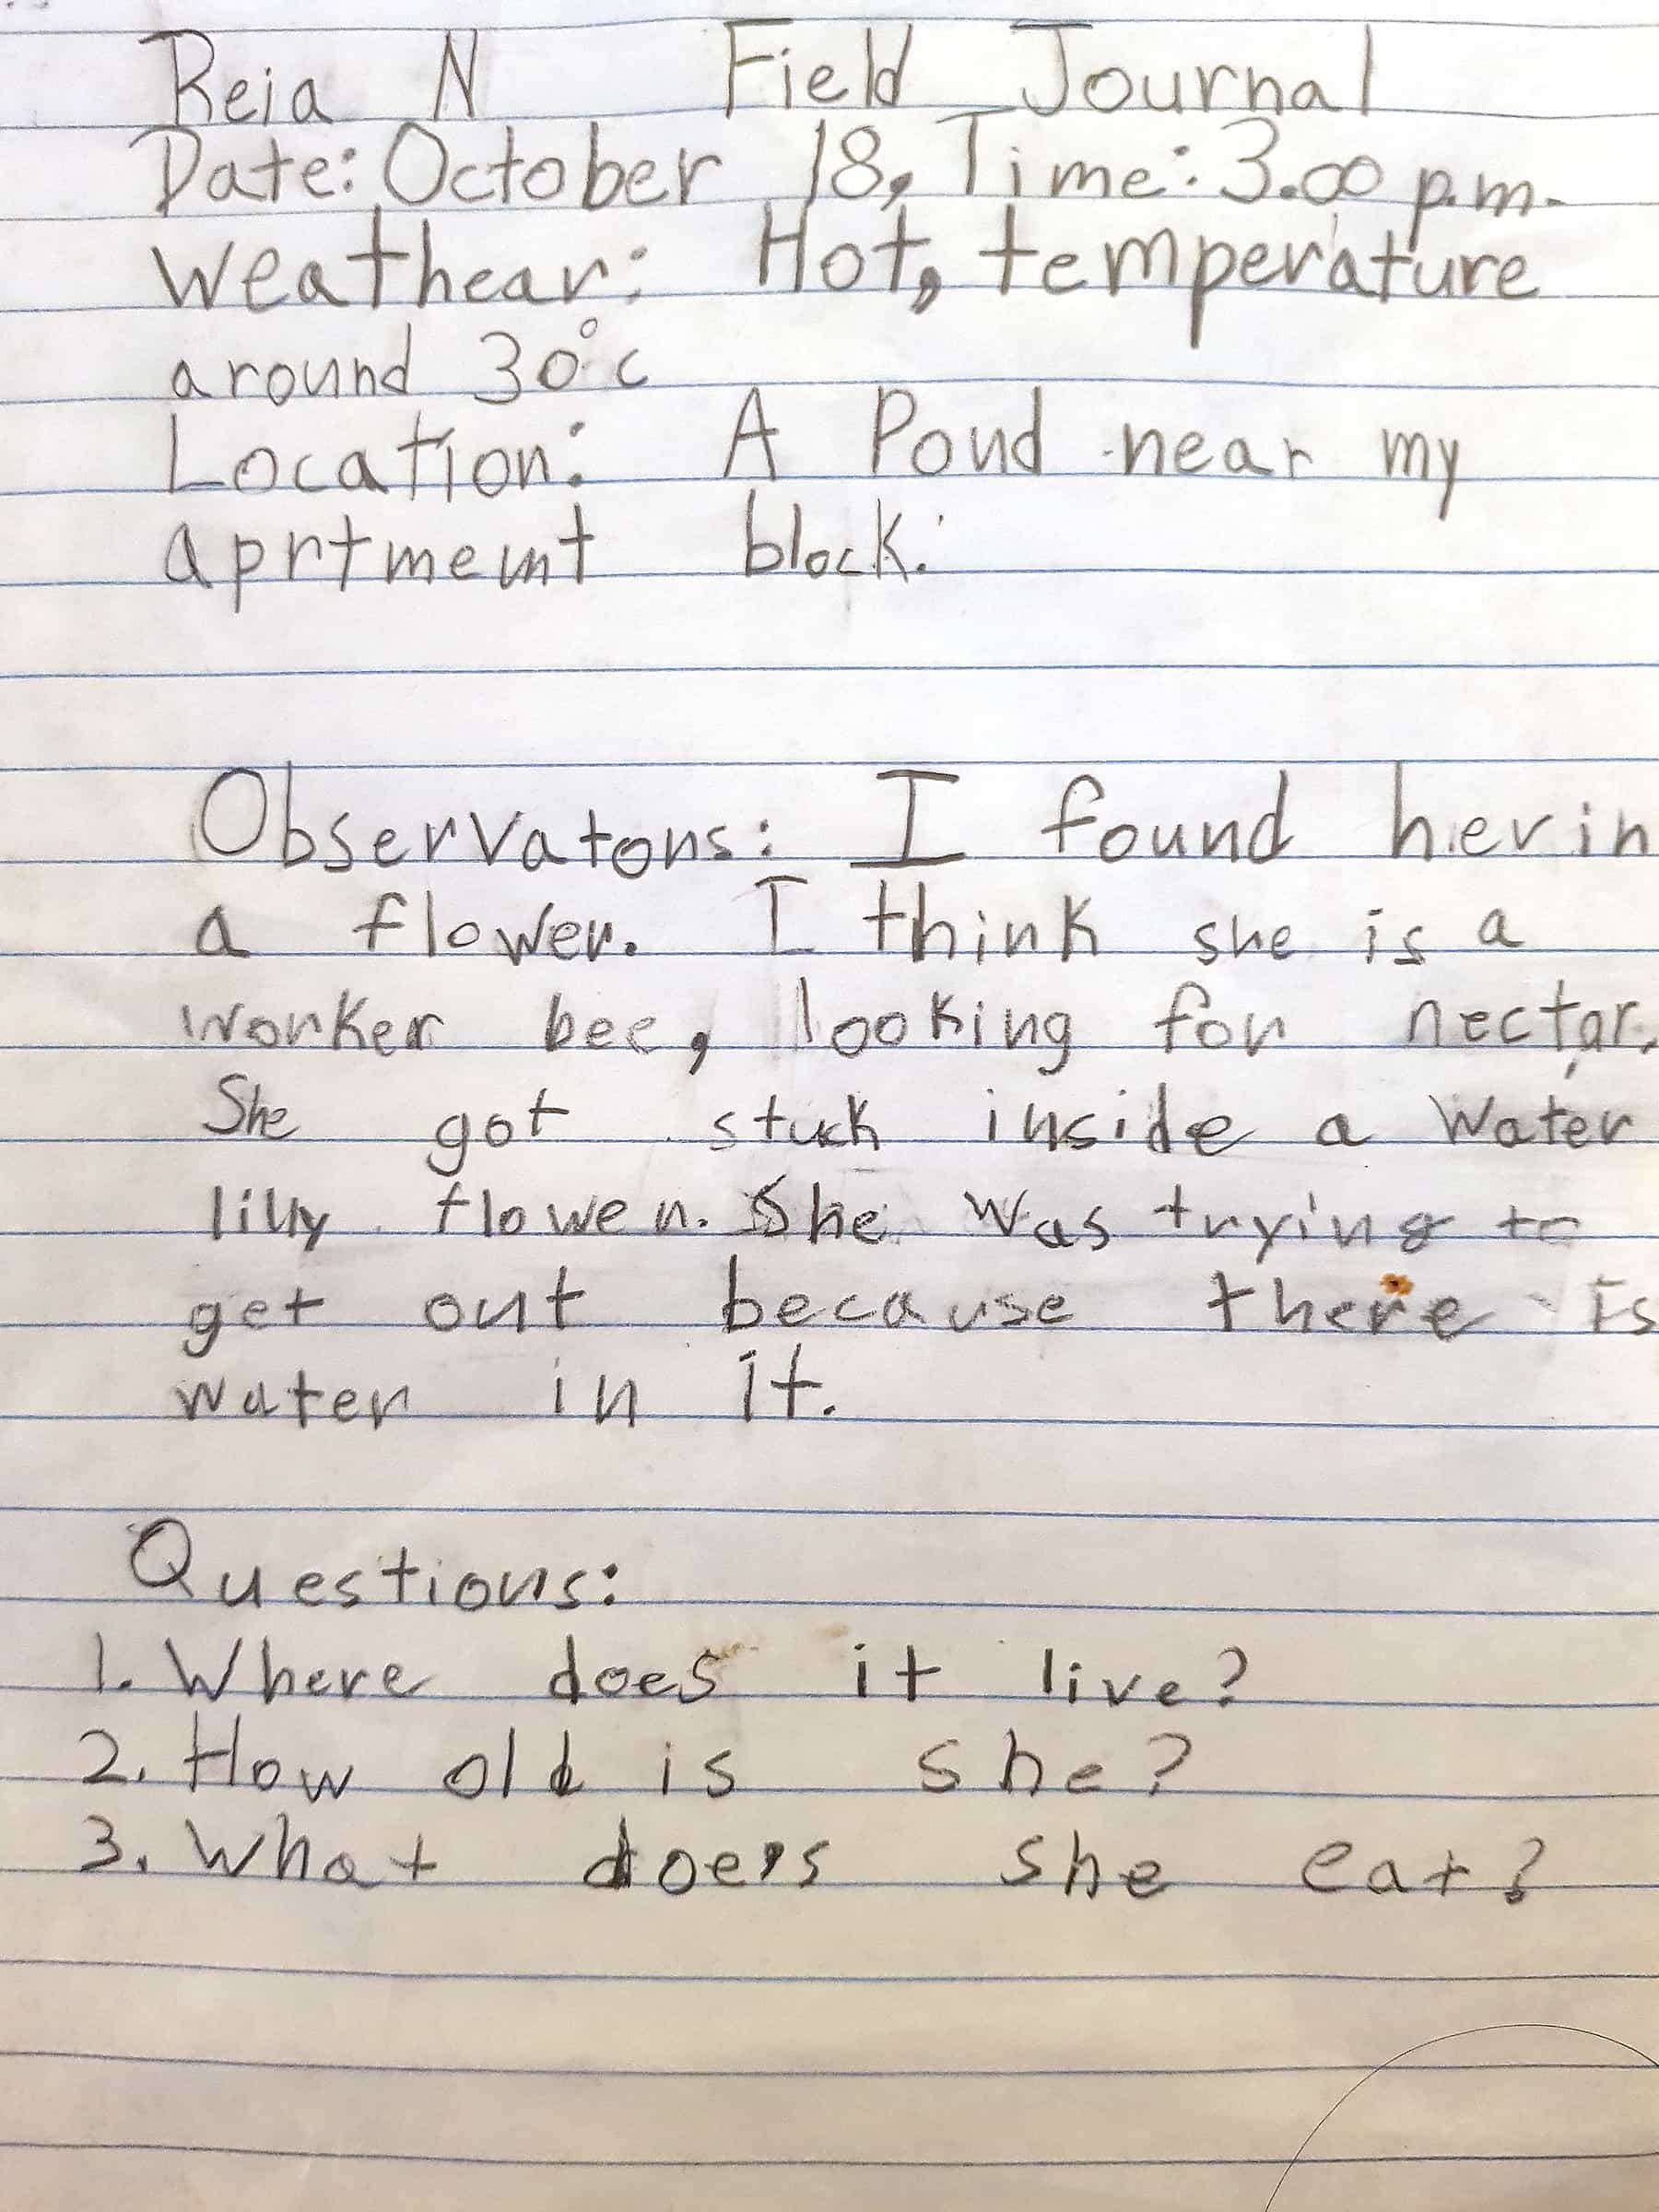 Reia N Field Journal
Date: October 18, Time: 3.00 p.m.
Weathear: Hot, temperature
around 30°c
Location: A Pond near my
aprtment block.
Observatons: I found her in
a flower. I think she is a
worker bee, looking for nectar.
She got stuck inside a Water
lilly flower. She was trying to
get out because there is
water in it.
Questions:
1. Where does it live?
2. How old is she?
3. What does she eat?